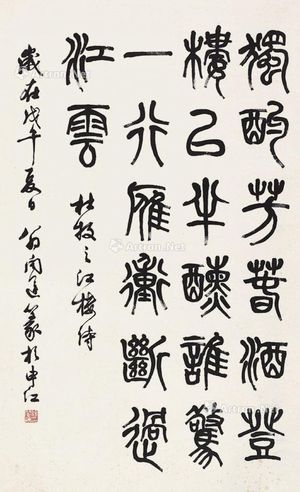 獨酌芳春酒登
樓已半醺誰驚
一行雁衝斷過
江雲
杜牧之江樓詩
歲在戊午夏日翁闓運篆於申江
Artron.Net